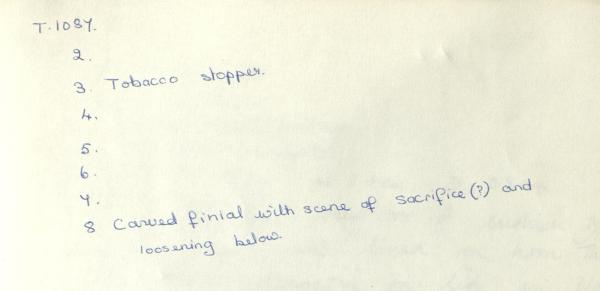 T.1087.
2.
3. Tobacco stopper.
4.
5.
6.
7.
8 Carved finial with scene of sacrifice (?) and
loosening below.